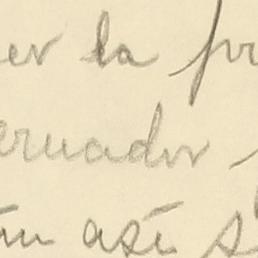 er la pr
ernador
ún así s